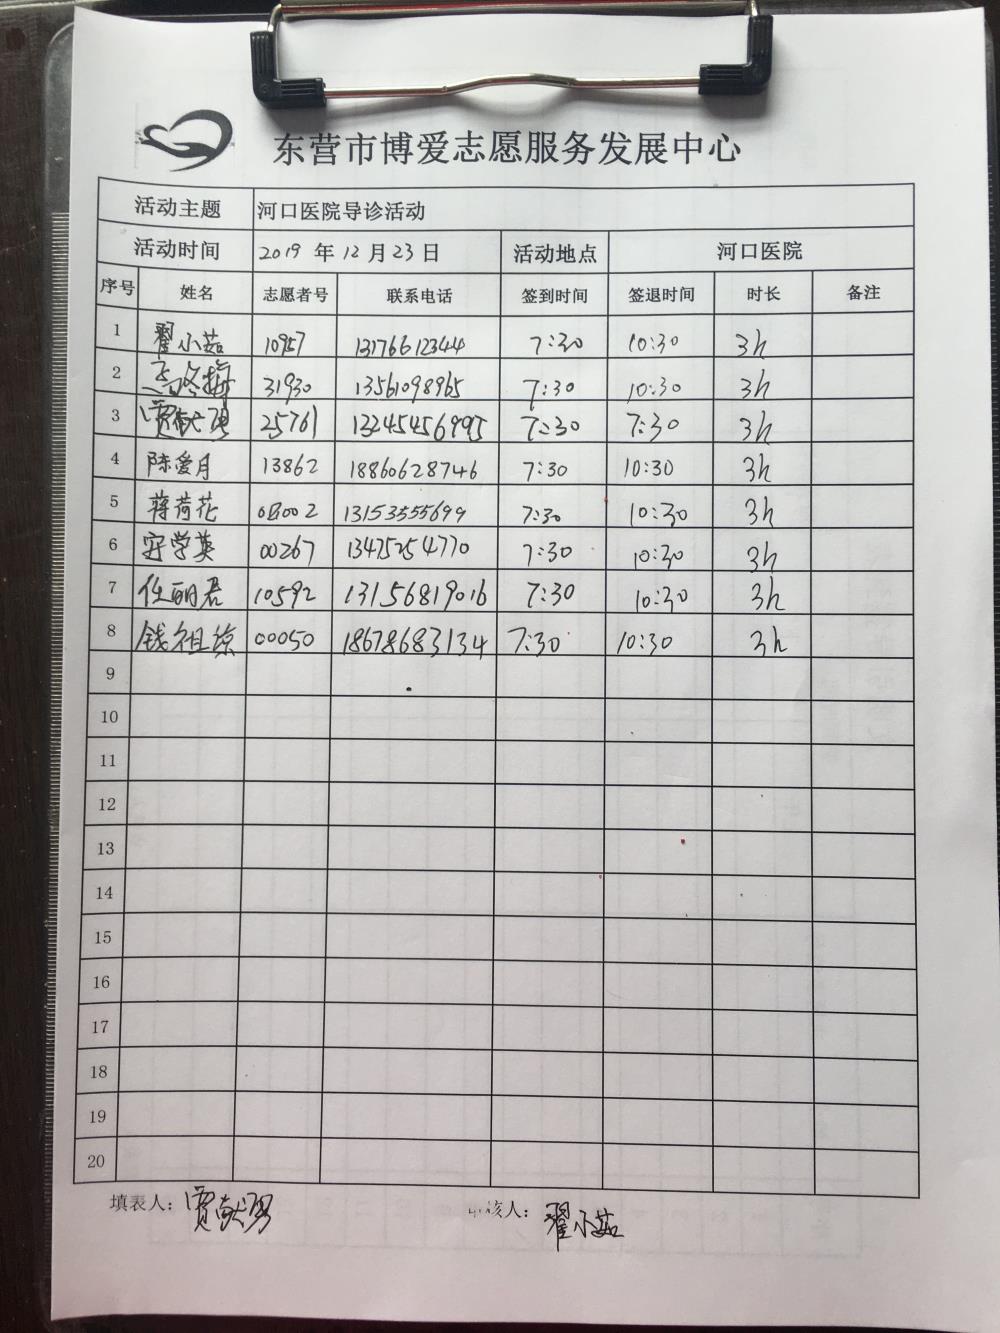 东营市博爱志愿服务发展中心
活动主题 河口医院导诊活动
活动时间 2019 年 12 月 23 日 活动地点 河口医院
序号 姓名 志愿者号 联系电话 签到时间 签退时间 时长 备注
1 翟小茹 10957 13176612344 7:30 10:30 3h
2 31930 13561098965 7:30 10:30 3h
3 贾献勇 25761 13245456995 7:30 7:30 3h
4 陈爱月 13862 18860628746 7:30 10:30 3h
5 蒋荷花 13153555699 7:30 10:30 3h
6 学英 00267 13475254770 7:30 10:30 3h
7 任丽君 10592 13156819016 7:30 10:30 3h
8 钱祖琼 00050 18678683134 7:30 10:30 3h
9
10
11
12
13
14
15
16
17
18
19
20
填表人: 贾献勇 核人: 翟小茹